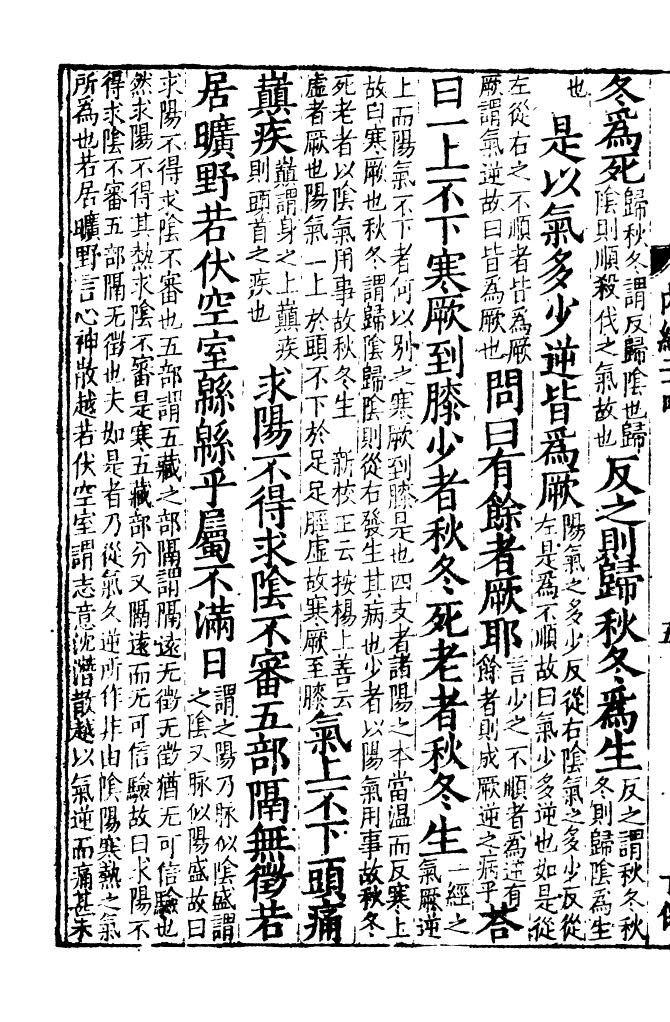 冬爲死
歸秋冬謂反歸陰也歸
陰則順殺伐之氣故也
反之則歸秋冬爲生
反之謂秋冬秋
冬則歸陰爲生
也
是以氣多少逆皆爲厥
陽氣之多少反從右陰氣之多少反從
左是爲不順故曰氣少多逆也如是從
左從右之不順者皆爲厥
厥謂氣逆故曰皆爲厥也
問曰有餘者厥耶
言少之不順者爲逆有
餘者則成厥逆之病乎
荅
曰一上不下寒厥到膝少者秋冬死老者秋冬生
一經之
氣厥逆
上而陽氣不下者何以別之寒厥到膝是也四支者諸陽之本當温而反寒上
故曰寒厥也秋冬謂歸陰歸陰則從右發生其病也少者以陽氣用事故秋冬
死老者以陰氣用事故秋冬生 新校正云按楊上善云
虛者厥也陽氣一上於頭不下於足足脛虛故寒厥至膝
氣上不下頭痛
巓疾
巓謂身之上巓疾
則頭首之疾也
求陽不得求陰不審五部隔無徵若
居曠野若伏空室緜緜乎屬不滿日
謂之陽乃脉似陰盛謂
之陰又脉似陽盛故曰
求陽不得求陰不審也五部謂五藏之部隔謂隔遠无徵无徵猶无可信驗也
然求陽不得其熱求陰不審是寒五藏部分又隔遠而无可信驗故曰求陽不
得求陰不審五部隔无徵也夫如是者乃從氣久逆所作非由陰陽寒熱之氣
所爲也若居曠野言心神散越若伏空室謂志意沈潛散越以氣逆而痛甚未